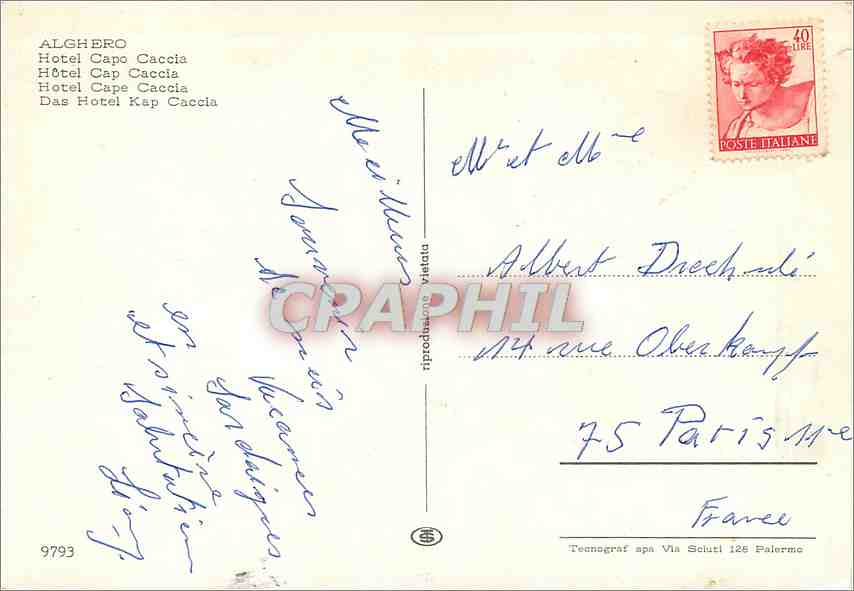 ALGHERO
Hotel Capo Caccia
Hôtel Cap Caccia
Hotel Cape Caccia
Das Hotel Kap Caccia
Meilleurs
Souvenir
de
Vacances
en Sardaigne
et sincère
Salutation
9793
riproduzione vietata
CPAPHIL
40
LIRE
POSTE ITALIANE
Mr et Mme
Albert
14 rue Oberkampf
75 Paris 11e
France
Tecnograf spa Via Sciuti 126 Palermo